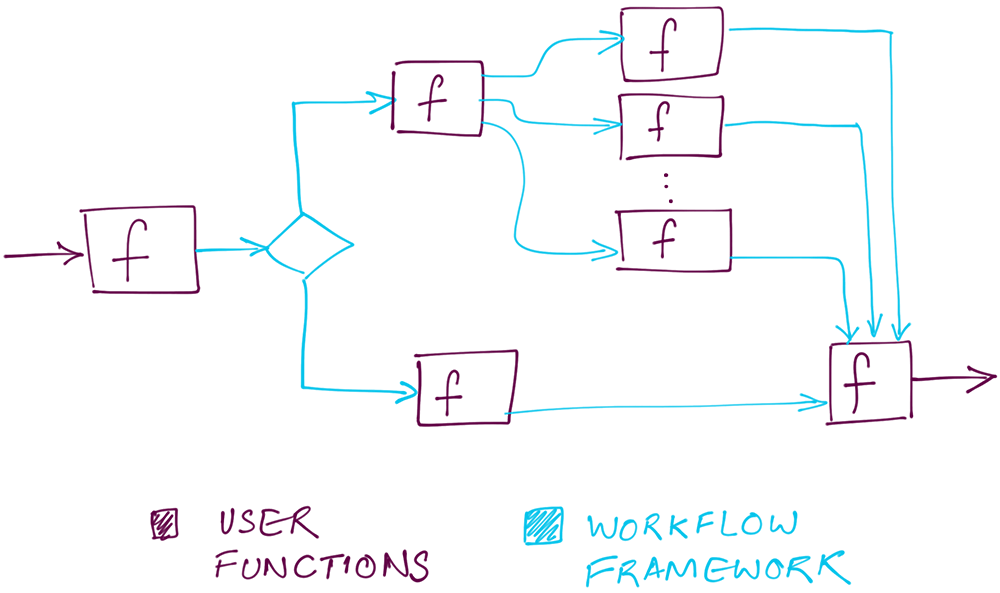 f
f
f
f
f
f
f
USER
FUNCTIONS
WORKFLOW
FRAMEWORK